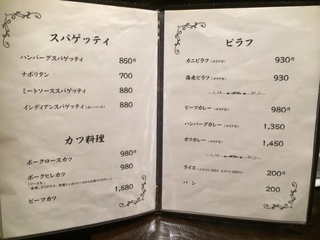 スパゲッティ
ハンバーグスパゲッティ 850円
ナポリタン 700
ミートソーススパゲッティ 880
インディアンスパゲッティ 880
カツ料理
ポークロースカツ 980円
ポークヒレカツ 980
ビーフカツ 1,580
ピラフ
カニピラフ 930円
海老ピラフ 930
ビーフカレー 980円
ハンバーグカレー 1,350
カツカレー 1,450
ライス 200円
パン 200